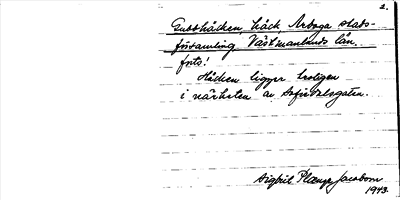 2.
Gubbhäcken, häck, Arboga stads-
församling Västmanlands län.
forts!
Häcken ligger troligen
i närheten av Sofiedalsgatan.
Sigfrid Plænge Jacobson
1943.